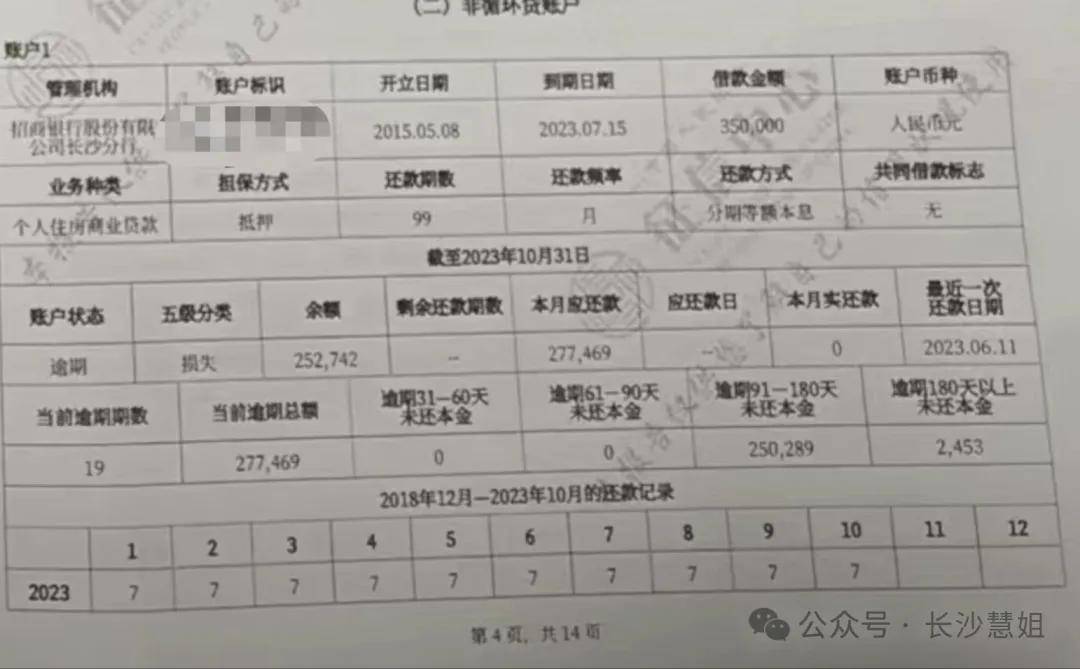 （二）非循环贷账户
账户1
管理机构 账户标识 开立日期 到期日期 借款金额 账户币种
招商银行股份有限
公司长沙分行 2015.05.08 2023.07.15 350,000 人民币元
业务种类 担保方式 还款期数 还款频率 还款方式 共同借款标志
个人住房商业贷款 抵押 99 月 分期等额本息 无
截至2023年10月31日
账户状态 五级分类 余额 剩余还款期数 本月应还款 应还款日 本月实还款 最近一次
还款日期
逾期 损失 252,742 -- 277,469 -- 0 2023.06.11
当前逾期期数 当前逾期总额 逾期31—60天
未还本金 逾期61—90天
未还本金 逾期91—180天
未还本金 逾期180天以上
未还本金
19 277,469 0 0 250,289 2,453
2018年12月—2023年10月的还款记录
1 2 3 4 5 6 7 8 9 10 11 12
2023 7 7 7 7 7 7 7 7 7 7
第 4 页，共 14 页
公众号 · 长沙慧姐